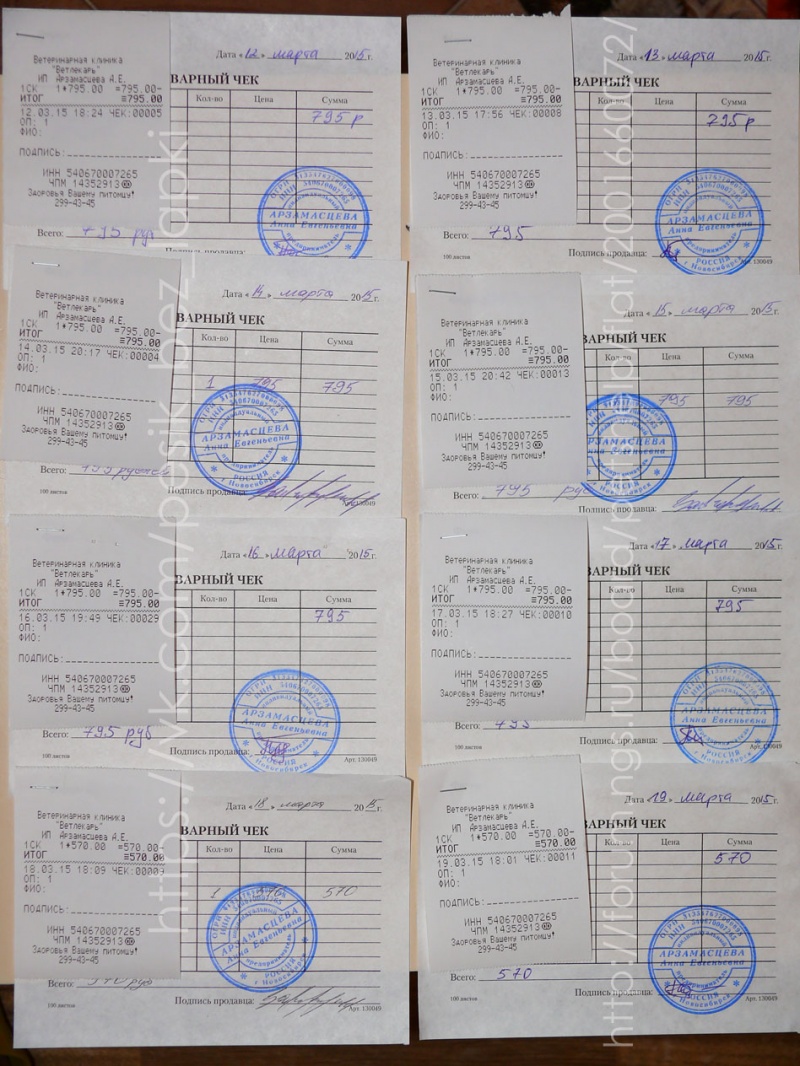 Ветеринарная клиника
"Ветлекарь"
ИП Арзамасцева А.Е.
1СК 1*795.00 =795.00-
ИТОГ ≡795.00
12.03.15 18:24 ЧЕК:00005
ОП: 1
ФИО:
ПОДПИСЬ:
ИНН 540670007265
ЧПМ 14352913
Здоровья Вашему питомцу!
299-43-45
Дата «12» марта 2015г.
ВАРНЫЙ ЧЕК
Кол-во Цена Сумма
795 р
Всего: 795 руб
Подпись продавца:
АРЗАМАСЦЕВА
Анна Евгеньевна
предприниматель
Ветеринарная клиника
"Ветлекарь"
ИП Арзамасцева А.Е.
1СК 1*795.00 =795.00-
ИТОГ ≡795.00
13.03.15 17:56 ЧЕК:00008
ОП: 1
ФИО:
ПОДПИСЬ:
ИНН 540670007265
ЧПМ 14352913
Здоровья Вашему питомцу!
299-43-45
Дата «13» марта 2015г.
ВАРНЫЙ ЧЕК
Кол-во Цена Сумма
795 р
Всего: 795
100 листов
Подпись продавца:
Арт. 130049
АРЗАМАСЦЕВА
Анна Евгеньевна
предприниматель
РОССИЯ
г Новосибирск
Ветеринарная клиника
"Ветлекарь"
ИП Арзамасцева А.Е.
1СК 1*795.00 =795.00-
ИТОГ ≡795.00
14.03.15 20:17 ЧЕК:00004
ОП: 1
ФИО:
ПОДПИСЬ:
ИНН 540670007265
ЧПМ 14352913
Здоровья Вашему питомцу!
299-43-45
Дата «14» марта 2015г.
ВАРНЫЙ ЧЕК
Кол-во Цена Сумма
1 795 795
Всего: 795 рублей
100 листов
Подпись продавца:
Арт. 130049
АРЗАМАСЦЕВА
Анна Евгеньевна
предприниматель
РОССИЯ
г Новосибирск
Ветеринарная клиника
"Ветлекарь"
ИП Арзамасцева А.Е.
1СК 1*795.00 =795.00-
ИТОГ ≡795.00
15.03.15 20:42 ЧЕК:00013
ОП: 1
ФИО:
ПОДПИСЬ:
ИНН 540670007265
ЧПМ 14352913
Здоровья Вашему питомцу!
299-43-45
Дата «15» марта 2015г.
ВАРНЫЙ ЧЕК
Кол-во Цена Сумма
795 795
Всего: 795 руб
100 листов
Подпись продавца:
АРЗАМАСЦЕВА
Анна Евгеньевна
предприниматель
РОССИЯ
г Новосибирск
Ветеринарная клиника
"Ветлекарь"
ИП Арзамасцева А.Е.
1СК 1*795.00 =795.00-
ИТОГ ≡795.00
16.03.15 19:49 ЧЕК:00029
ОП: 1
ФИО:
ПОДПИСЬ:
ИНН 540670007265
ЧПМ 14352913
Здоровья Вашему питомцу!
299-43-45
Дата «16» марта 2015г.
ВАРНЫЙ ЧЕК
Кол-во Цена Сумма
795
Всего: 795 руб
100 листов
Подпись продавца:
Арт. 130049
АРЗАМАСЦЕВА
Анна Евгеньевна
предприниматель
РОССИЯ
г Новосибирск
Ветеринарная клиника
"Ветлекарь"
ИП Арзамасцева А.Е.
1СК 1*795.00 =795.00-
ИТОГ ≡795.00
17.03.15 18:27 ЧЕК:00010
ОП: 1
ФИО:
ПОДПИСЬ:
ИНН 540670007265
ЧПМ 14352913
Здоровья Вашему питомцу!
299-43-45
Дата «17» марта 2015г.
ВАРНЫЙ ЧЕК
Кол-во Цена Сумма
795
Всего: 795
100 листов
Подпись продавца:
Арт. 130049
АРЗАМАСЦЕВА
Анна Евгеньевна
предприниматель
РОССИЯ
г Новосибирск
Ветеринарная клиника
"Ветлекарь"
ИП Арзамасцева А.Е.
1СК 1*570.00 =570.00-
ИТОГ ≡570.00
18.03.15 18:09 ЧЕК:00009
ОП: 1
ФИО:
ПОДПИСЬ:
ИНН 540670007265
ЧПМ 14352913
Здоровья Вашему питомцу!
299-43-45
Дата «18» марта 2015г.
ВАРНЫЙ ЧЕК
Кол-во Цена Сумма
1 570 570
Всего: 570 руб
100 листов
Подпись продавца:
Арт. 130049
АРЗАМАСЦЕВА
Анна Евгеньевна
предприниматель
РОССИЯ
г Новосибирск
Ветеринарная клиника
"Ветлекарь"
ИП Арзамасцева А.Е.
1СК 1*570.00 =570.00-
ИТОГ ≡570.00
19.03.15 18:01 ЧЕК:00011
ОП: 1
ФИО:
ПОДПИСЬ:
ИНН 540670007265
ЧПМ 14352913
Здоровья Вашему питомцу!
299-43-45
Дата «19» марта 2015г.
ВАРНЫЙ ЧЕК
Кол-во Цена Сумма
570
Всего: 570
100 листов
Подпись продавца:
Арт. 130049
АРЗАМАСЦЕВА
Анна Евгеньевна
предприниматель
РОССИЯ
г Новосибирск
https://vk.com/pesik_bez_lapki